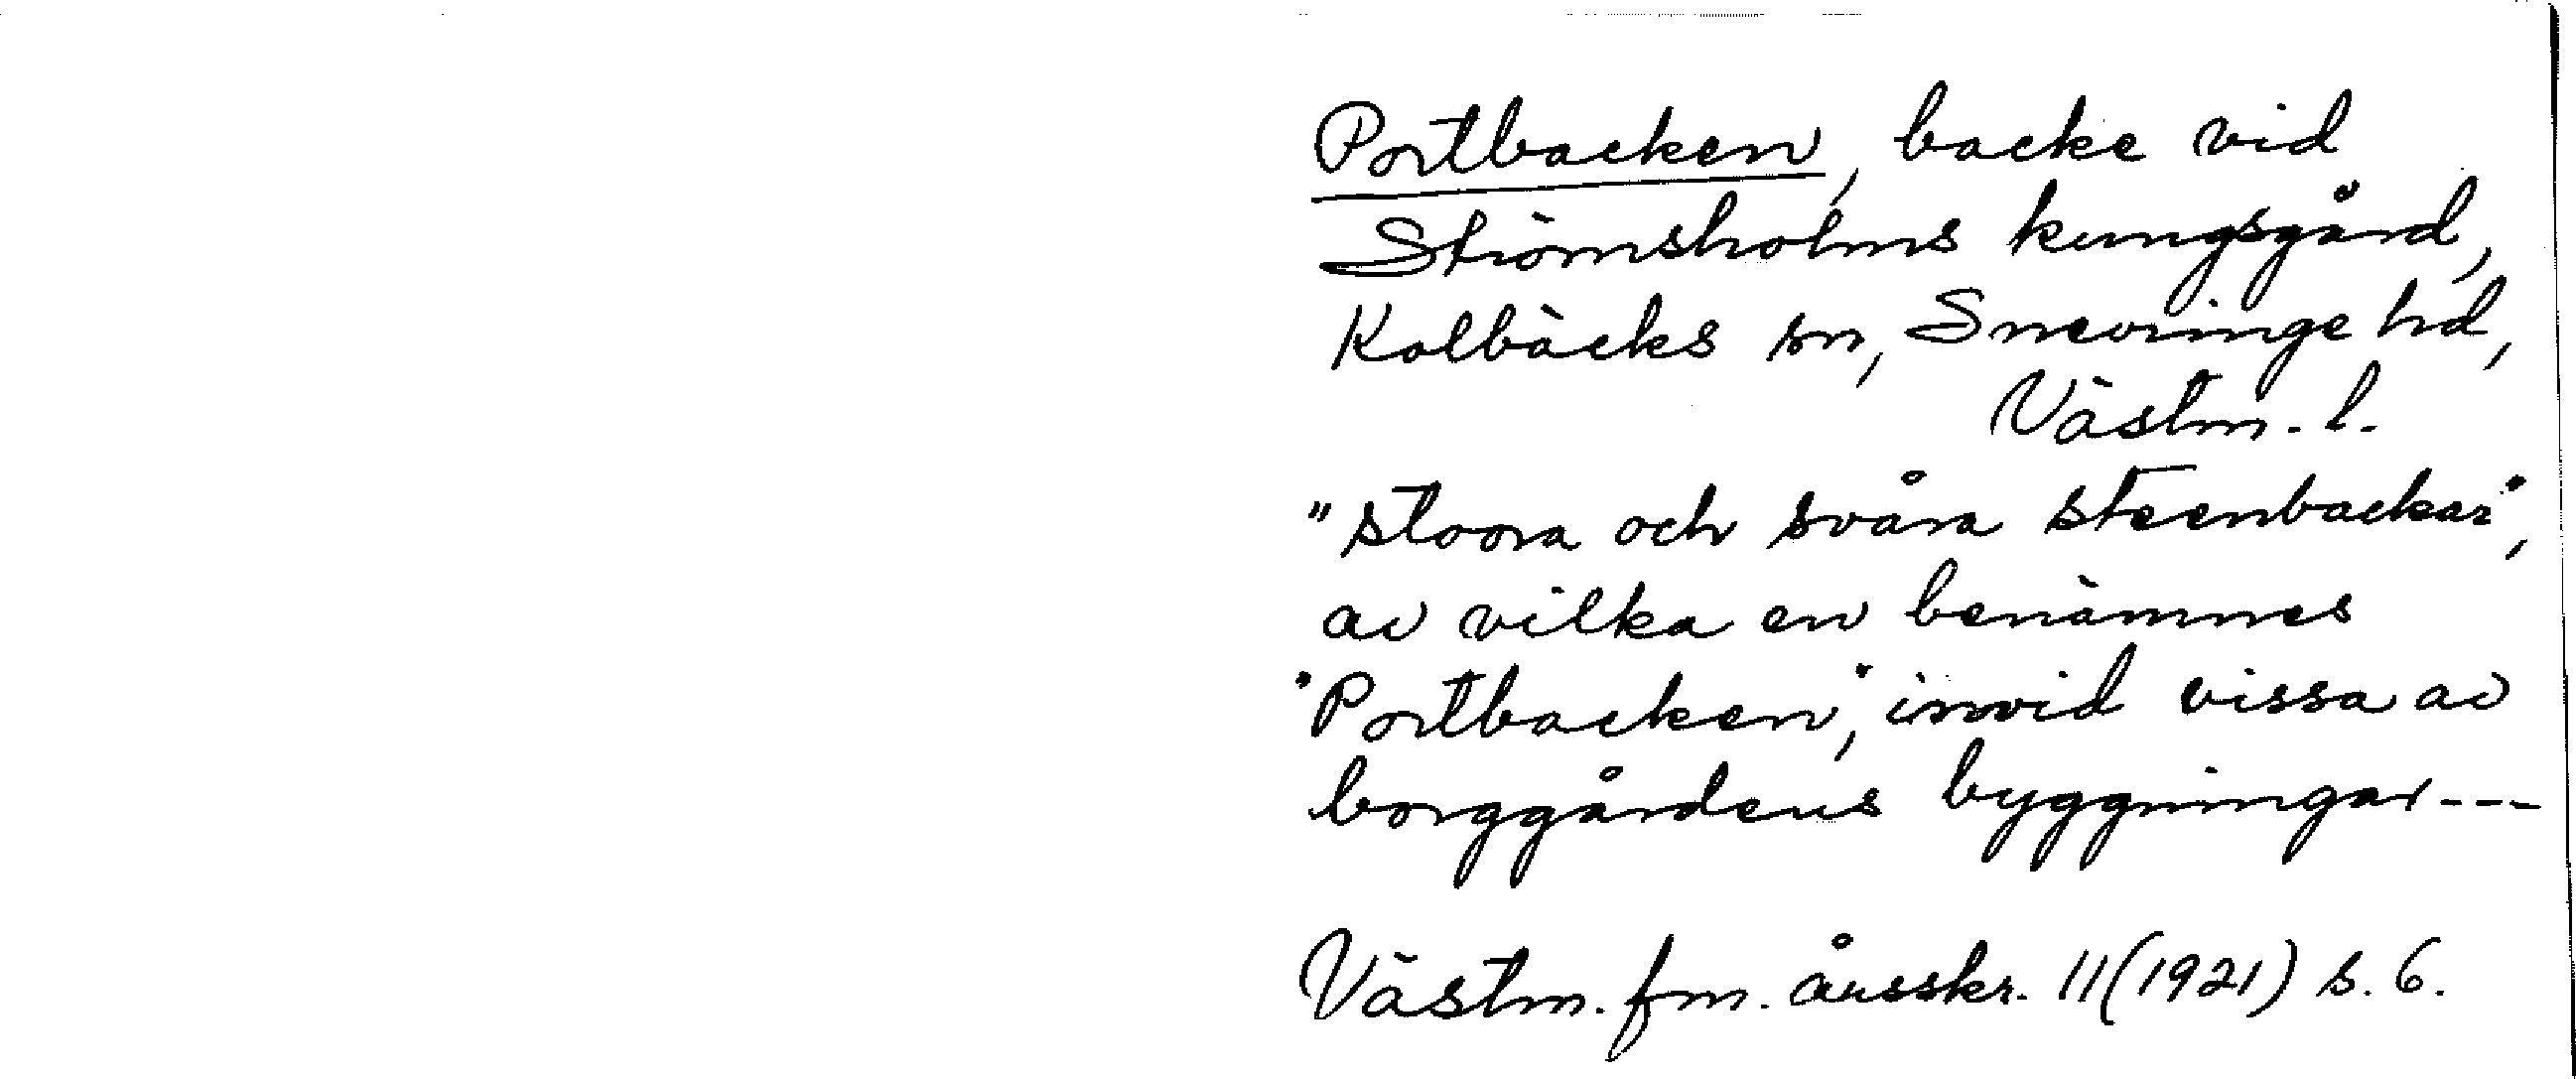 Portbacken, backe vid
Strömsholms kungsgård,
Kolbäcks sn, Snevringe hd,
Västm. l.
"stoora och svåra steenbackar",
av vilka en benämnes
"Portbacken", invid vissa av
borggårdens byggningar---
Västm. fm. årsskr. 11 (1921) s. 6.